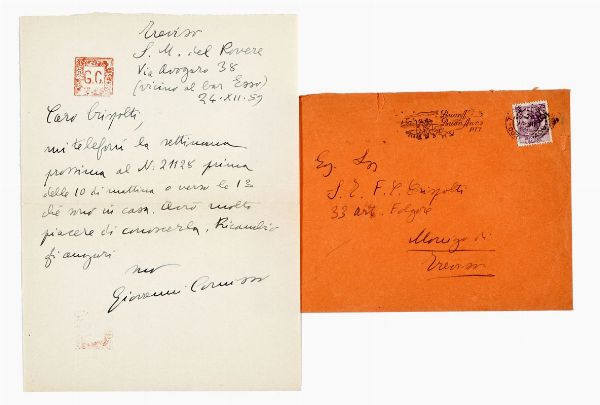 Treviso
S. M. del Rovere
Via Avogaro 38
(vicino al bar Esso)
24.XII.59
G.C.
Caro Crispolti,
mi telefoni la settimana
prossima al N. 21128 prima
delle 10 di mattina o verso le 13
che sono in casa. Avrò molto
piacere di conoscerla. Ricambio
gli auguri
suo
Giovanni Comisso
Buone Feste
Buon Anno
PTT
Eg. Sig.
S. E. F. C. Crispolti
33 art. Folgore
Monigo di
Treviso